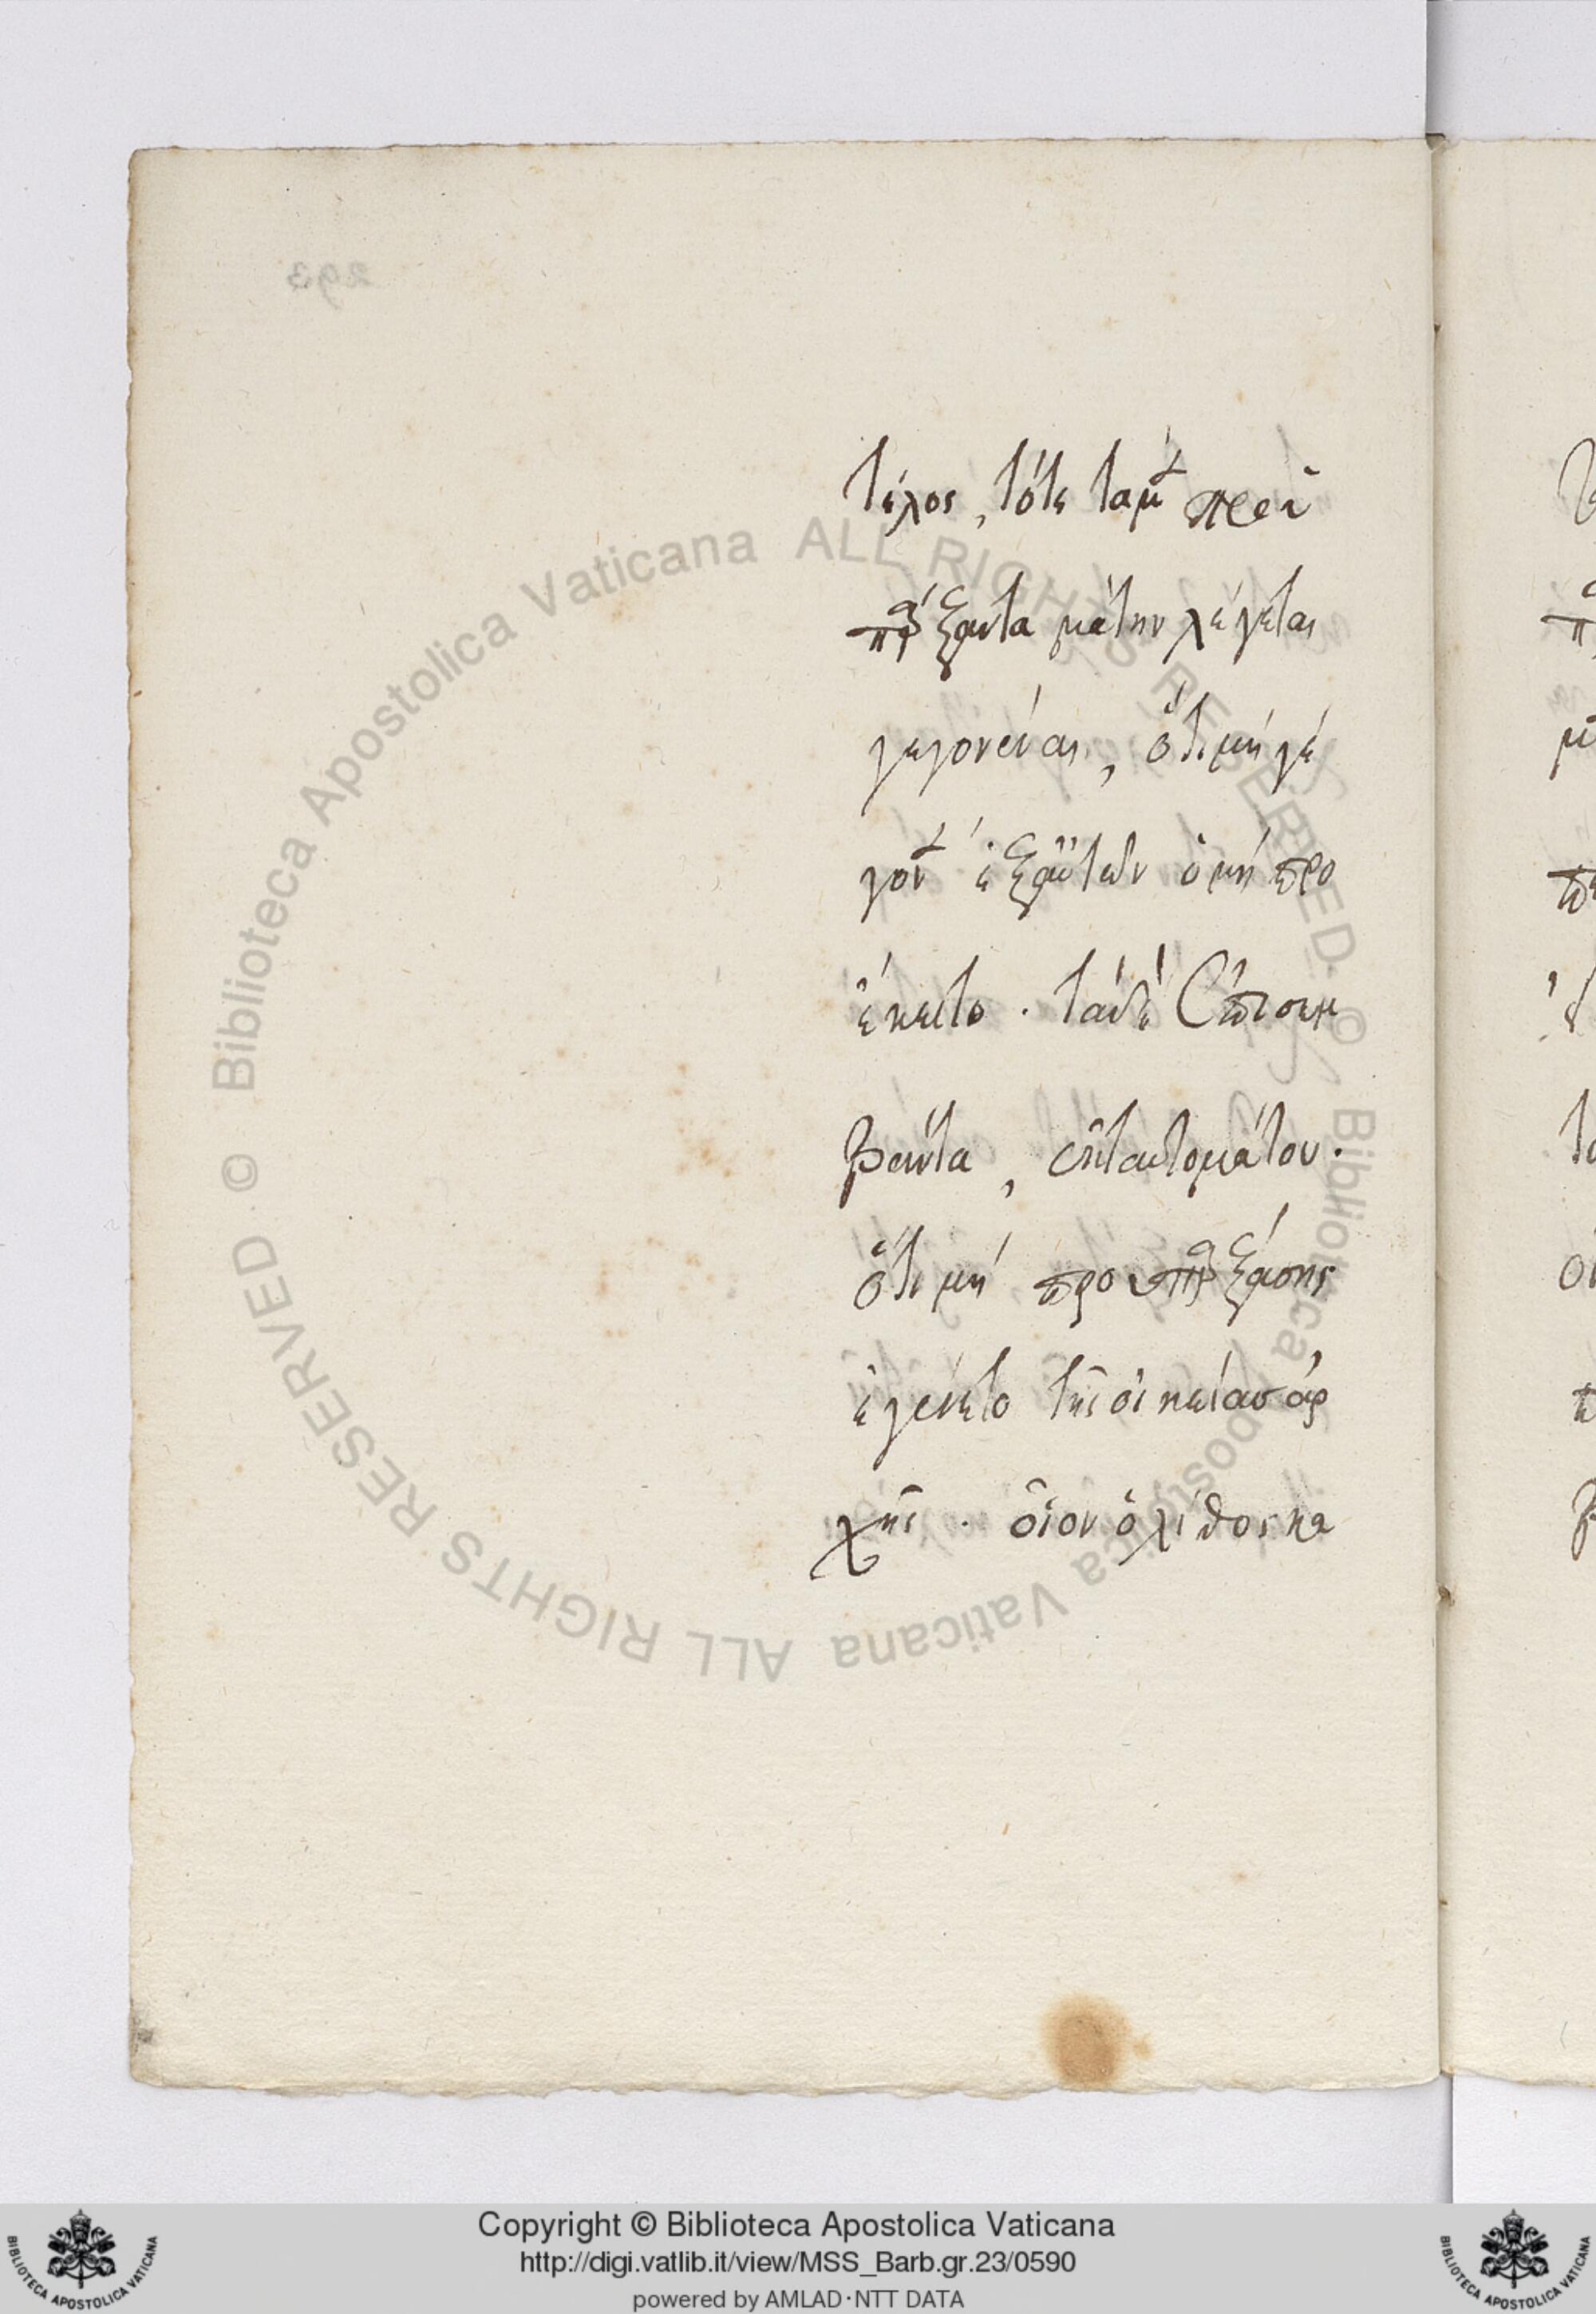 293
τέλος, τότε τὰ μὲν προὶ
πράξαντα μάτην λέγεται
γεγονέναι, ὅτι μὴ γέ
γονεν ἐξ αὐτῶν ὃ μὴ προ
έκειτο. τὰ δὲ ἐπισυμ
βάντα, ἐκ ταυτομάτου.
ὅτι μὴ προϋπαρξάσης
ἐγένετο τῆς οἰκείας ἀρ
χῆς. οἷον ὁ λίθος κα
Biblioteca Apostolica Vaticana ALL RIGHTS RESERVED. © Biblioteca Apostolica Vaticana ALL RIGHTS RESERVED. ©
Copyright © Biblioteca Apostolica Vaticana
http://digi.vatlib.it/view/MSS_Barb.gr.23/0590
powered by AMLAD·NTT DATA
BIBLIOTECA APOSTOLICA VATICANA
BIBLIOTECA APOSTOLICA VATICANA